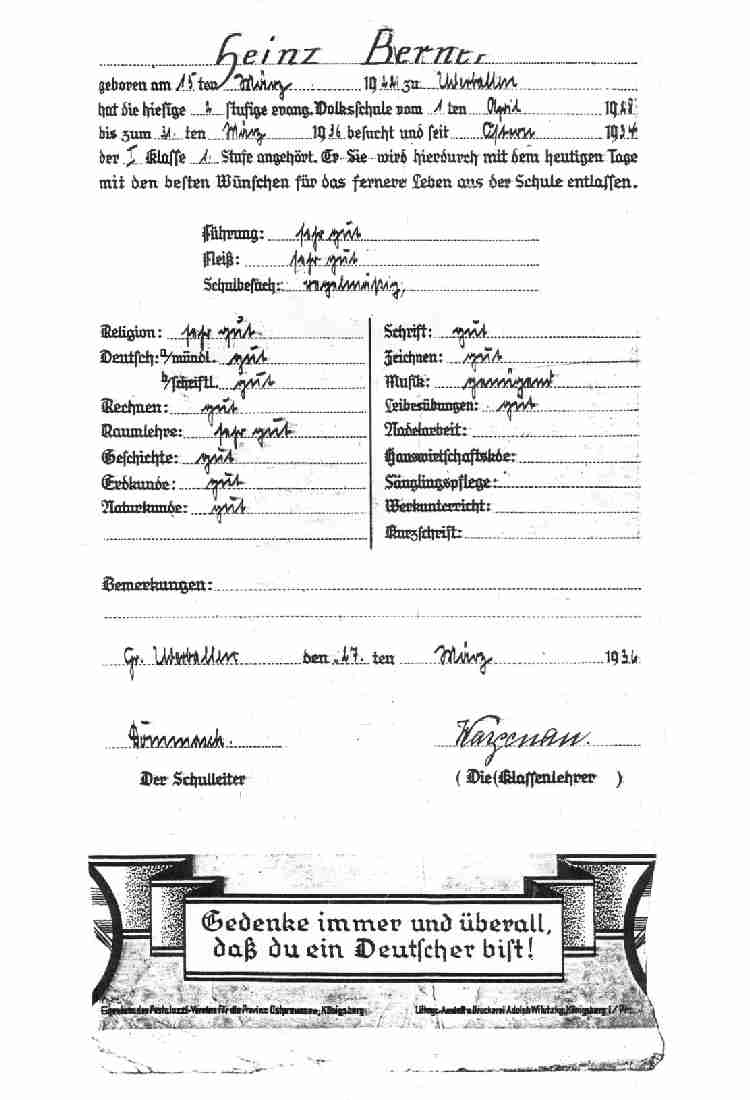 Heinz Berner
geboren am 15 ten März 1922 zu Uderballen
hat die hiesige 2 stufige evang. Volksschule vom 1 ten April 1928
bis zum 31. ten März 1936 besucht und seit Ostern 1934
der I Klasse 1. Stufe angehört. Er Sie wird hierdurch mit dem heutigen Tage
mit den besten Wünschen für das fernere Leben aus der Schule entlassen.
Führung: sehr gut
Fleiß: sehr gut
Schulbesuch: regelmäßig,
Religion: sehr gut
Deutsch: a/ mündl. gut
b/ schriftl. gut
Rechnen: gut
Raumlehre: sehr gut
Geschichte: gut
Erdkunde: gut
Naturkunde: gut
Schrift: gut
Zeichnen: gut
Musik: genügend
Leibesübungen: gut
Nadelarbeit:
Hauswirtschaftskde:
Säuglingspflege:
Werkunterricht:
Kurzschrift:
Bemerkungen:
Gr. den 27. ten März 1936
Der Schulleiter
( Die (Klassenlehrer )
Gedenke immer und überall,
daß du ein Deutscher bist!
Eigentum des Pestalozzi-Vereins für die Provinz Ostpreussen, Königsberg
Lithogr. Anstalt u. Druckerei Adolph Wilutzky, Königsberg i/Pr.